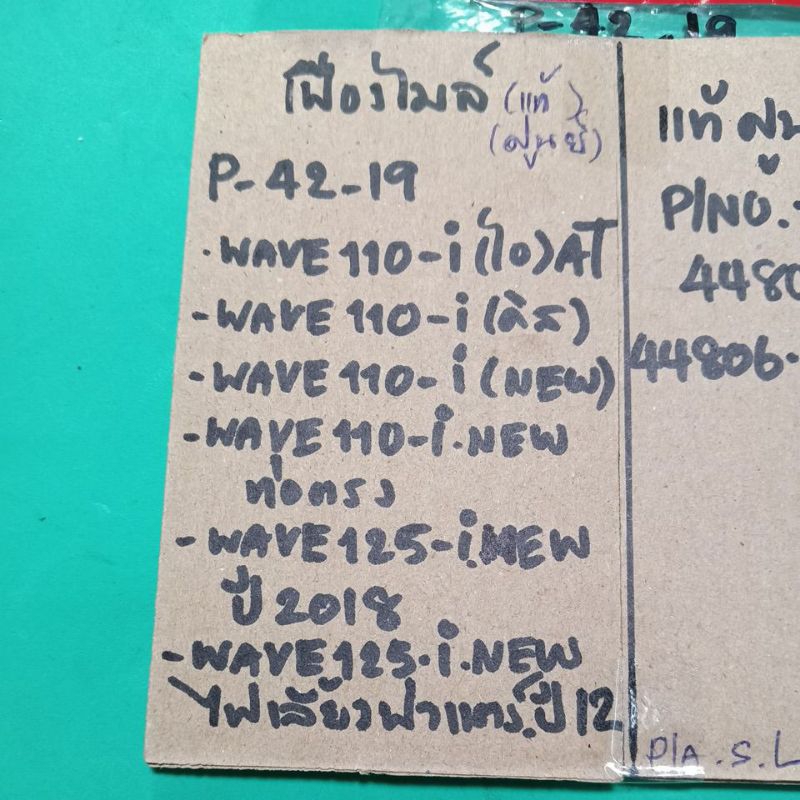 P-42-19
เฟืองไมล์ (แท้)
(ศูนย์)
P-42-19
·WAVE 110-i (ไอ) AT
-WAVE 110-i (ดิส)
-WAVE 110-i (NEW)
-WAVE 110-i.NEW
ท่อตรง
-WAVE 125-i.NEW
ปี 2018
-WAVE 125.i.NEW
ไฟเลี้ยวฝาแตร.ปี 12
แท้ ศูน
P/NO.-
4480
44806-
P/A.S.L